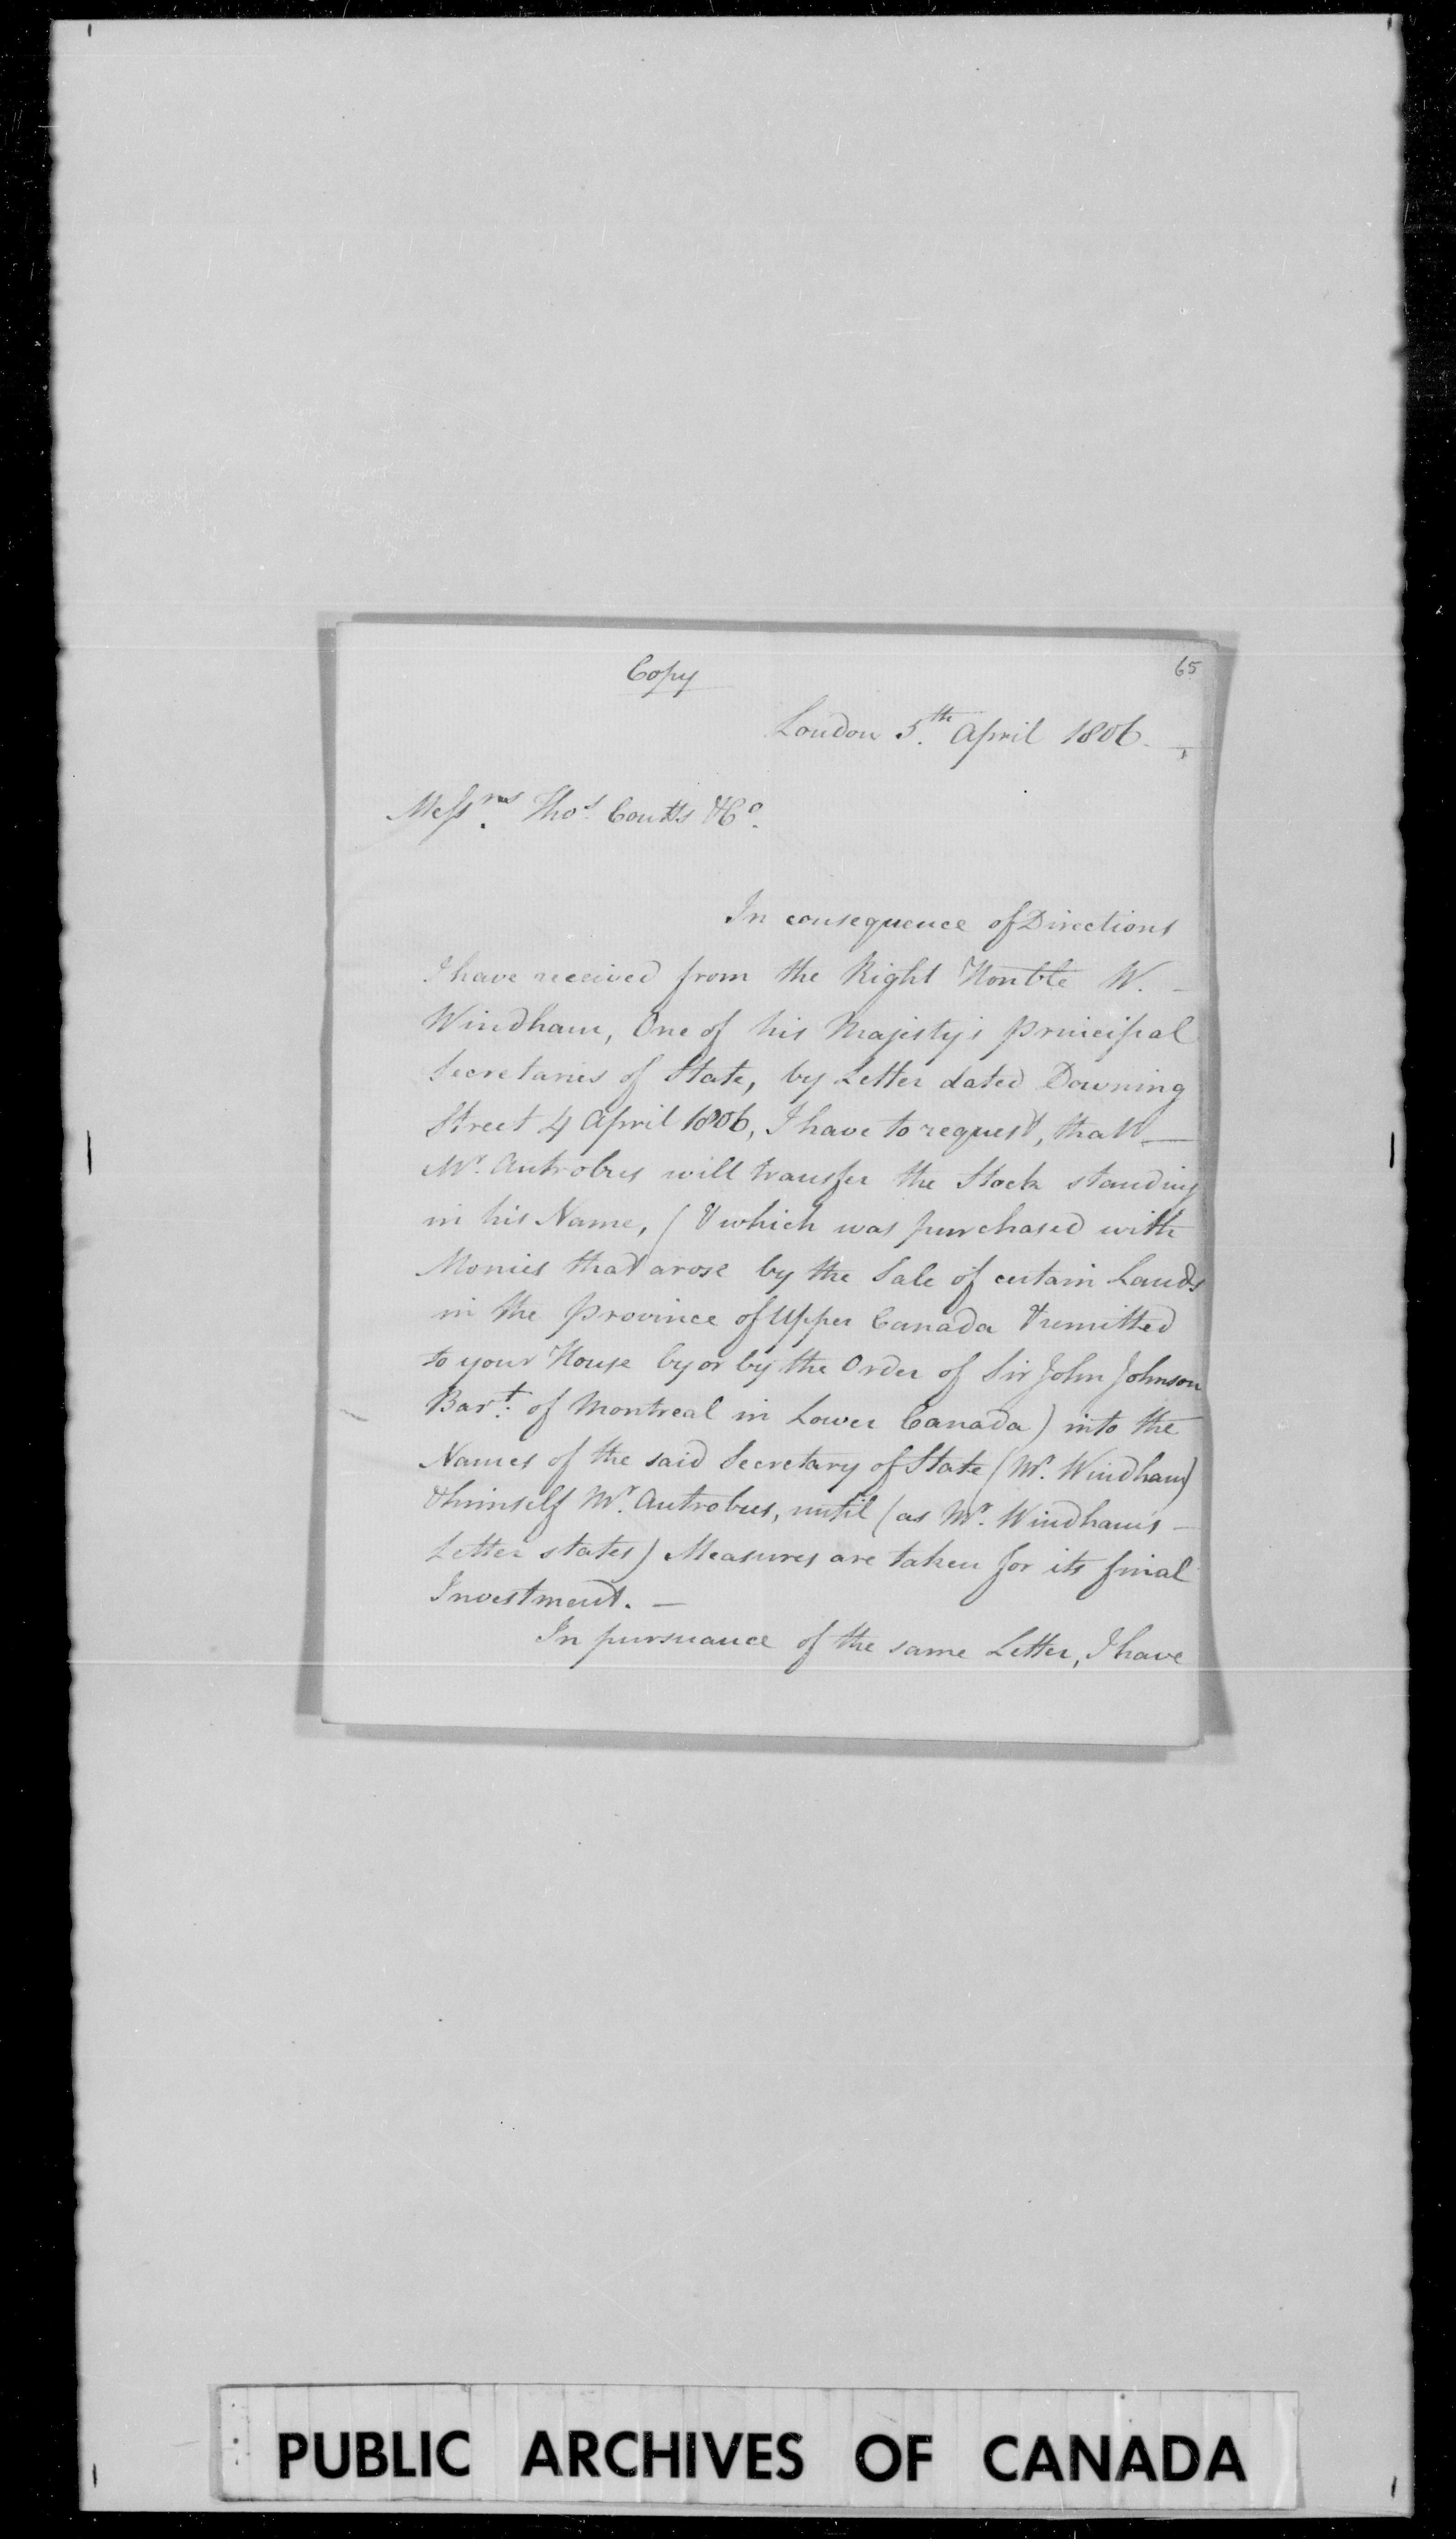 Copy
65
London 5.th April 1806.
Messrs. Thos. Coutts & Co.
In consequence of Directions
I have received from the Right Honble W. -
Windham, One of his Majesty's principal
Secretaries of State, by Letter dated Downing
Street 4 April 1806, I have to request, that -
Mr. Antrobus will transfer the Stock standing
in his Name, (& which was purchased with
Monies that arose by the Sale of certain Lands
in the Province of Upper Canada & remitted
to your House by or by the Order of Sir John Johnson
Bart. of Montreal in Lower Canada) into the
Names of the said Secretary of State (Mr. Windham)
& himself Mr. Antrobus, until (as Mr. Windham's -
Letter states) Measures are taken for its final
Investment. -
In pursuance of the same Letter, I have
PUBLIC ARCHIVES OF CANADA